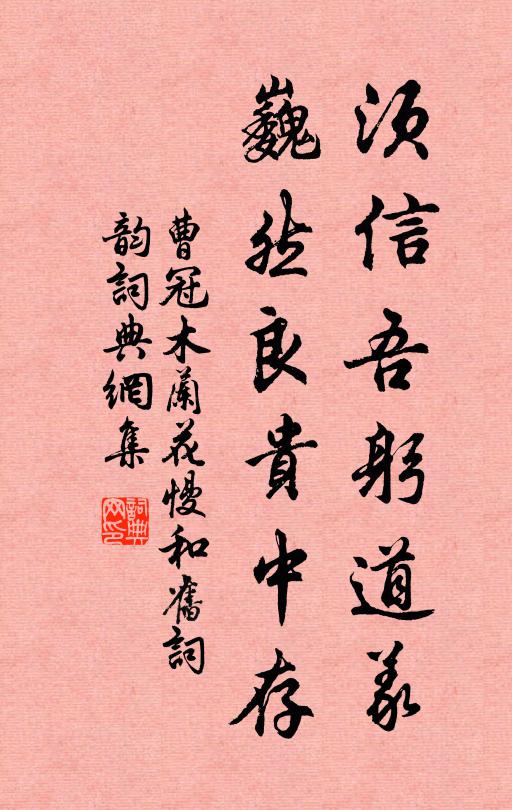 須信吾躬道義
巍然良貴中存
曹冠木蘭花慢和舊詞
韵詞典網集
詞典網印